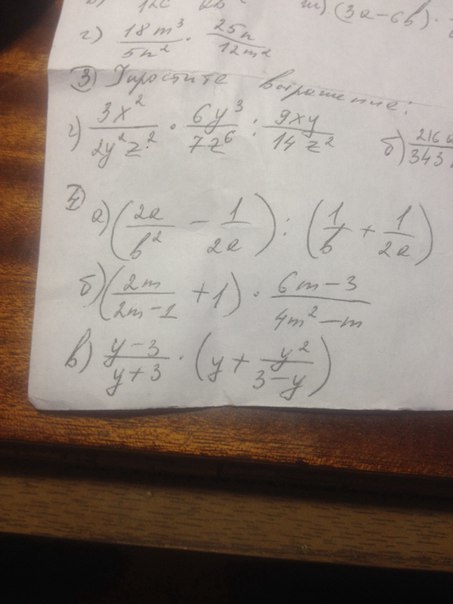 г) 18m³/5n² · 25n/12m²
③ Упростите выражение:
г) 3x²/2y²z² · 6y³/7z⁶ : 9xy/14z²
б) 216
343
4
а) (2a/b² − 1/2a) : (1/b + 1/2a)
б) (2m/2m−1 + 1) · 6m−3/4m²−m
в) y−3/y+3 · (y + y²/3−y)